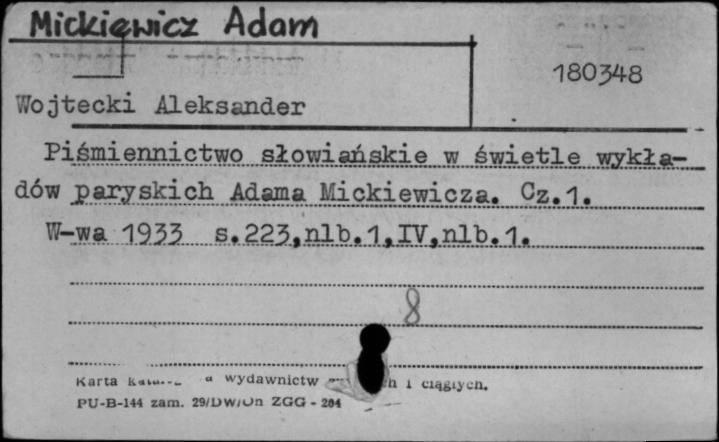 Mickiewicz Adam
180348
Wojtecki Aleksander
Piśmiennictwo słowiańskie w świetle wykła-
dów paryskich Adama Mickiewicza. Cz.1.
W-wa 1933 s.223,nlb.1,IV,nlb.1.
8
Karta wydawnictw i ciągłych.
PU-B-144 zam. 29/DW/Un ZGG - 204